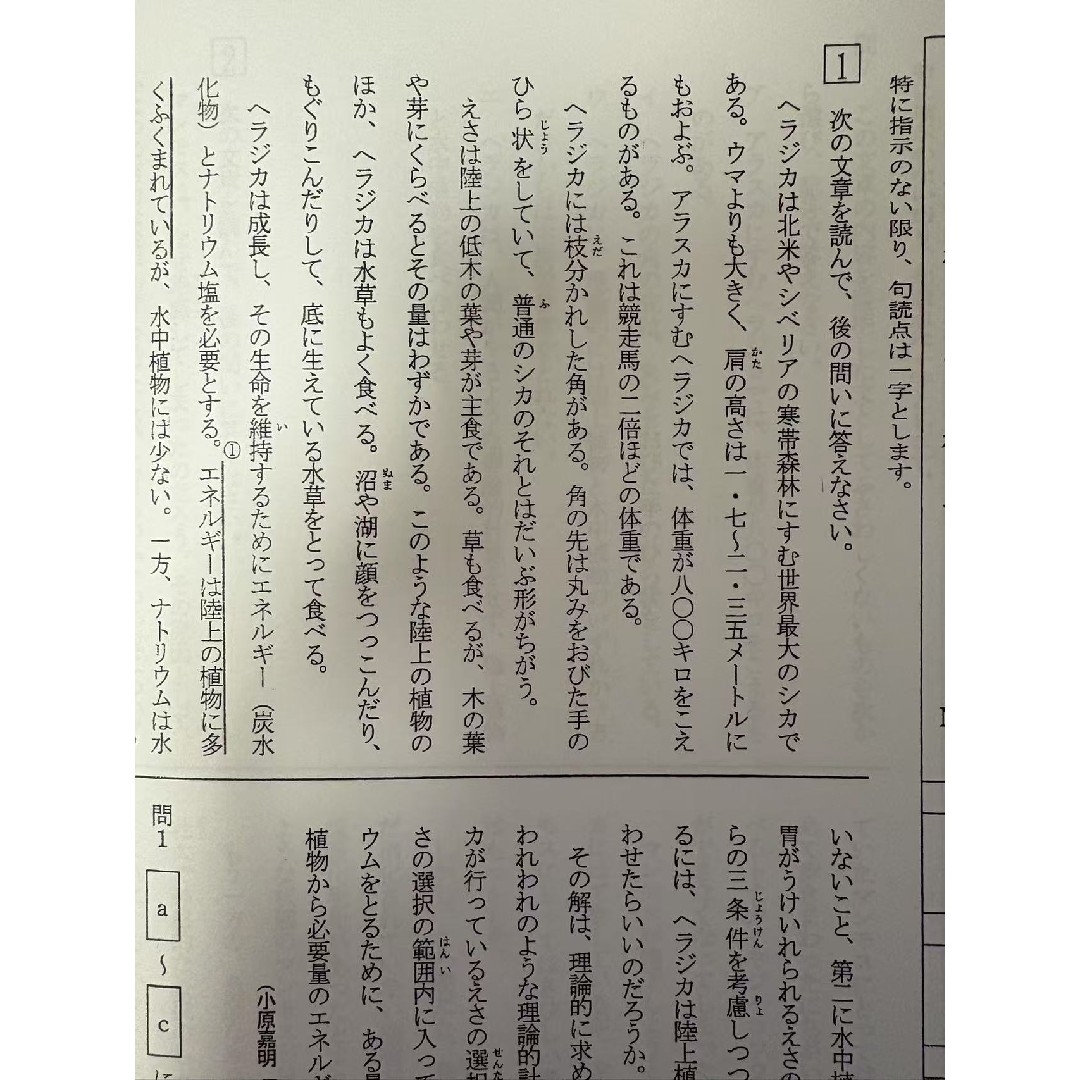 特に指示のない限り、句読点は一字とします。
1 次の文章を読んで、後の問いに答えなさい。
ヘラジカは北米やシベリアの寒帯森林にすむ世界最大のシカで
ある。ウマよりも大きく、肩の高さは一・七〜二・三五メートルに
もおよぶ。アラスカにすむヘラジカでは、体重が八〇〇キロをこえ
るものがある。これは競走馬の二倍ほどの体重である。
ヘラジカには枝分かれした角がある。角の先は丸みをおびた手の
ひら状をしていて、普通のシカのそれとはだいぶ形がちがう。
えさは陸上の低木の葉や芽が主食である。草も食べるが、木の葉
や芽にくらべるとその量はわずかである。このような陸上の植物の
ほか、ヘラジカは水草もよく食べる。沼や湖に顔をつっこんだり、
もぐりこんだりして、底に生えている水草をとって食べる。
ヘラジカは成長し、その生命を維持するためにエネルギー（炭水
化物）とナトリウム塩を必要とする。①エネルギーは陸上の植物に多
くふくまれているが、水中植物には少ない。一方、ナトリウムは水
いないこと、第二に水中植
胃がうけいれられるえさの
らの三条件を考慮しつつ
るには、ヘラジカは陸上植
わせたらいいのだろうか。
その解は、理論的に求め
われわれのような理論的計
カが行っているえさの選択
さの選択の範囲内に入って
ウムをとるために、ある量
植物から必要量のエネルギ
（小原嘉明
問1 a 〜 c に